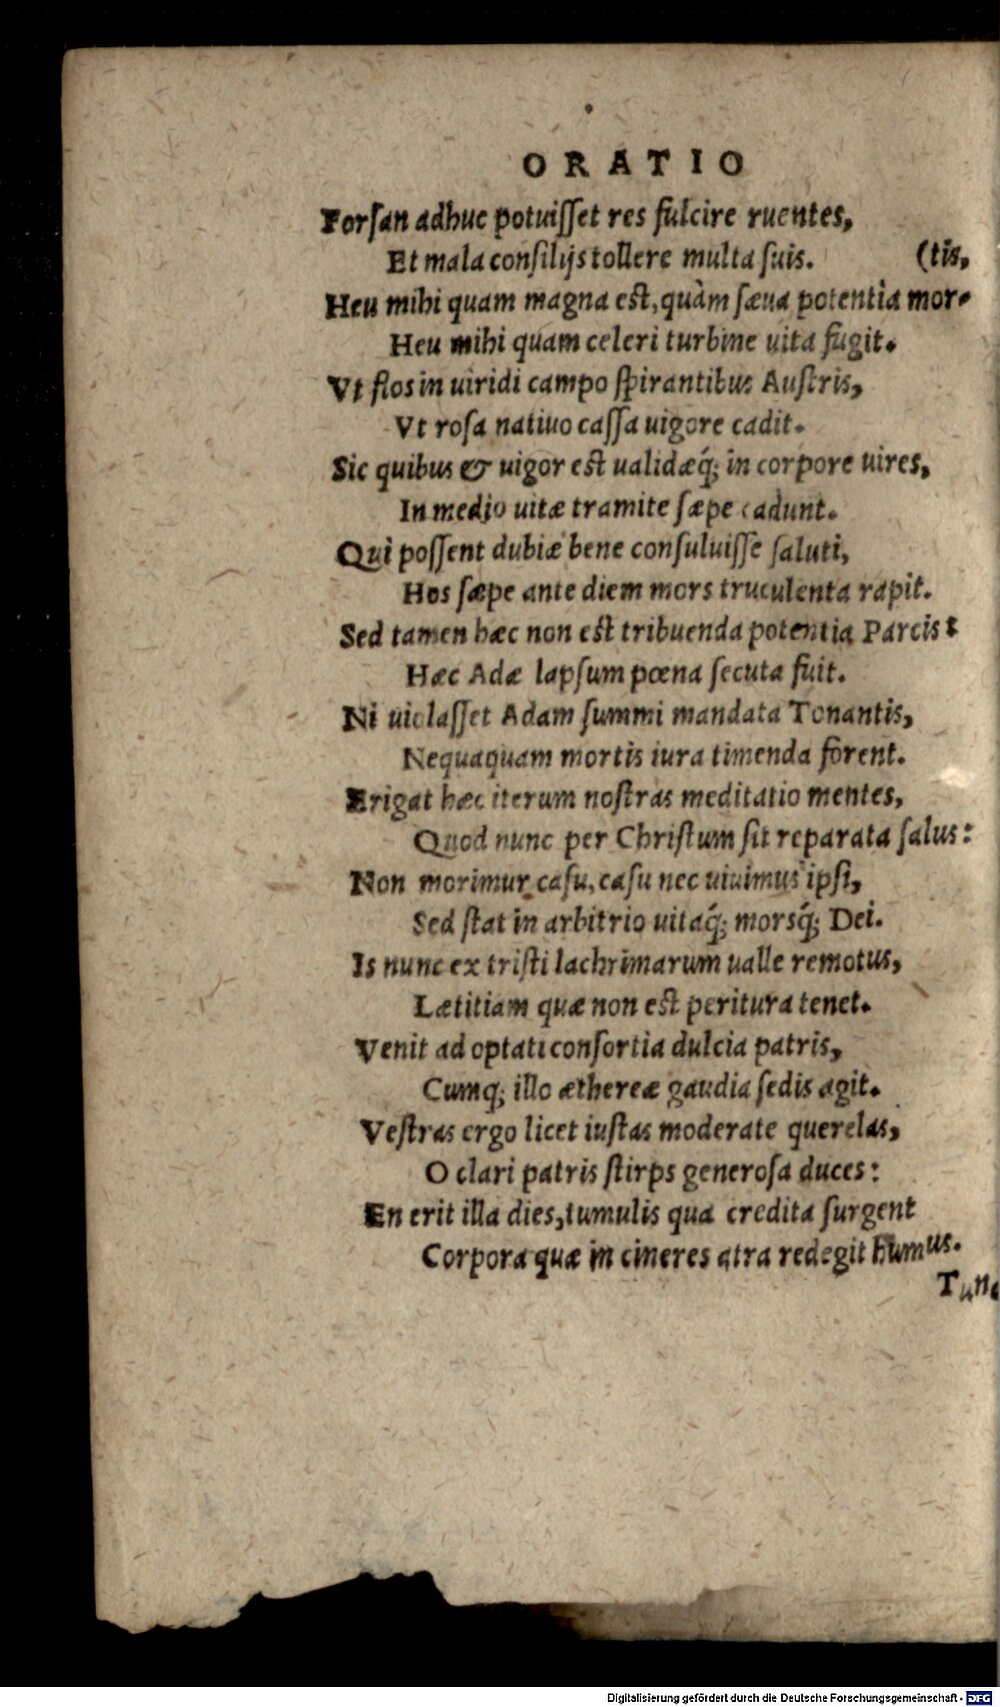 ORATIO
Forſan adhuc potuiſſet res fulcire ruentes,
Et mala conſilijs tollere multa ſuis. (tis,
Heu mihi quam magna est, quàm ſæua potentia mor-
Heu mihi quam celeri turbine uita fugit.
Vt flos in uiridi campo ſpirantibus Auſtris,
Vt roſa natiuo caſſa uigore cadit.
Sic quibus & uigor est ualidæq́; in corpore uires,
In medio uitæ tramite ſæpe cadunt.
Qui poſſent dubiæ bene conſuluiſſe ſaluti,
Hos ſæpe ante diem mors truculenta rapit.
Sed tamen hæc non est tribuenda potentia Parcis:
Hæc Adæ lapſum pœna ſecuta fuit.
Ni uiolaſſet Adam ſummi mandata Tonantis,
Nequaquam mortis iura timenda forent.
Erigat hæc iterum noſtras meditatio mentes,
Quod nunc per Chriſtum ſit reparata ſalus:
Non morimur caſu, caſu nec uiuimus ipſi,
Sed ſtat in arbitrio uitaq́; morsq́; Dei.
Is nunc ex triſti lachrimarum ualle remotus,
Lætitiam quæ non est peritura tenet.
Venit ad optati conſortia dulcia patris,
Cumq; illo æthereæ gaudia ſedis agit.
Veſtras ergo licet iuſtas moderate querelas,
O clari patris ſtirps generoſa duces:
En erit illa dies, tumulis qua credita ſurgent
Corpora quæ in cineres atra redegit humus.
Tunc
Digitalisierung gefördert durch die Deutsche Forschungsgemeinschaft - DFG